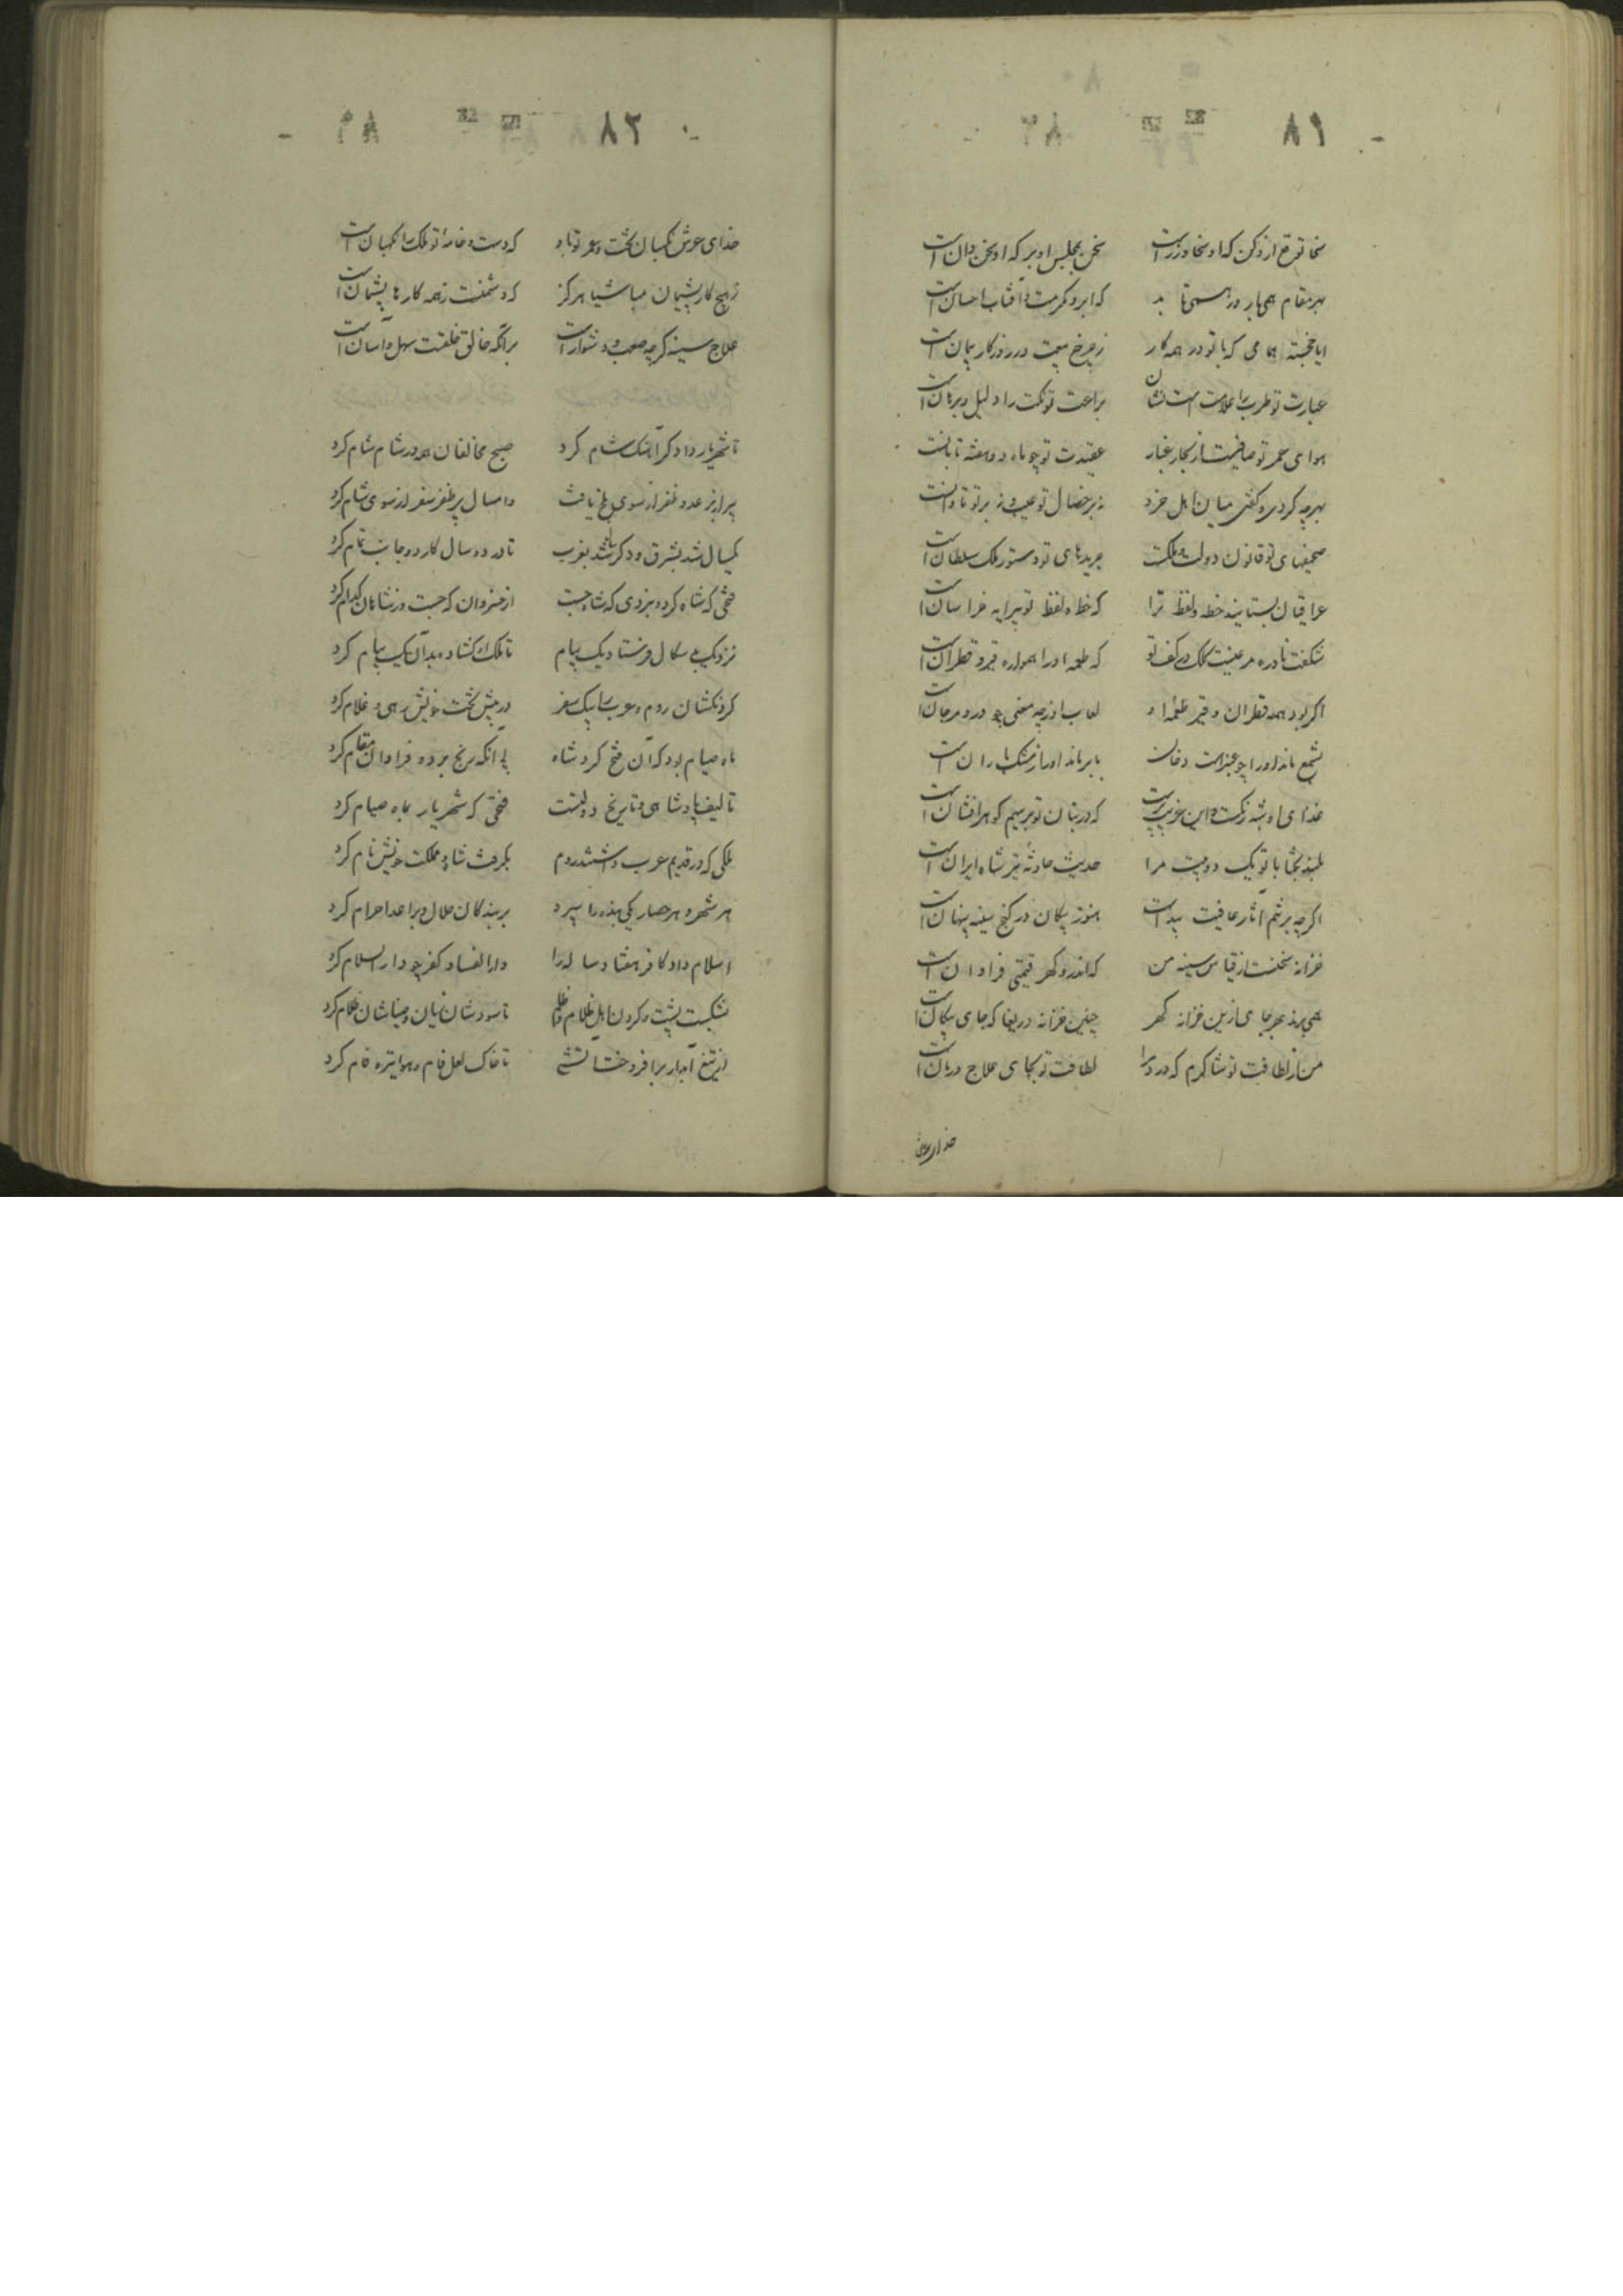 ٨١
سخا توقع ازو کن که او سخا ورزست سخن بمجلس او بر که او سخن دان است
بهر مقام همی بارد و همی تابد که ابر مکرمت و آفتاب احسان است
ایا خجسته همامی که با تو در همه کار ز چرخ بیعت و در روزگار پیمان است
عبارت تو طرب را علامت است و نشان براعت تو نکت را دلیل و برهان است
هوای عمر تو صافیست از بخار و غبار عقیدت تو چو ماه دو هفته تابانست
بهرچه کردی و گفتی میان اهل خرد نه بر خصال تو عیب و نه بر تو تاوانست
صحیفهای تو قانون دولت و ملکت جریدهای تو دستور ملک سلطان است
عراقیان بستایند خط و لفظ ترا که خط و لفظ تو پیرایه خراسان است
شکفت نادره مرغیست کلک در کف تو که طعمه او را همواره قیر و قطران است
اگر بود همه قطران و قیر طعمه او لعاب او ز چه معنی چو در و مرجان است
بشمع ماند او را چو عنبراست دخان بابر ماند او را ز مشک باران است
غذای او شبه رنگست و این غریب‌ترست که در بنان تو بر سیم گوهرافشان است
بلند بختا با تو یکی دو بیت مرا حدیث حادثه تیر شاه ایران است
اگرچه بر تنم آثار عافیت پیداست هنوز پیکان در کنج سینه پنهان است
خزانه سخنست از قیاس سینه من که اندرو گهر قیمتی فراوان است
همی برند بهر جای ازین خزانه گهر چنین خزانه دریغا که جای پیکان است
من از لطافت تو شاکرم که درد مرا لطافت تو بجای علاج و درمان است
خدای عرش
٨٢
خدای عرش نگهبان بخت و عمر تو باد که دست و خامهٔ تو ملک را نگهبان است
ز هیچ کار پشیمان مباشیا هرگز که دشمنت ز همه کارها پشیمان است
علاج سینه گرچه صعب و دشوار است بر آنکه خالق خلقست سهل و آسان است
تا شهریار دادگر آهنگ شام کرد صبح مخالفان همه در شام شام کرد
پیرار بر عدو ظفر از سوی بلخ یافت و امسال پر ظفر سفر از سوی شام کرد
یکسال شد بشرق و دگر سال شد بغرب تا در دو سال کار دو جانب تمام کرد
فتحی که شاه کرد و نبردی که شاه جست از خسروان که جست وز شاهان کدام کرد
نزدیک بدسکال فرستاد یک پیام تا ملک او گشاد بدان یک پیام کرد
گردنکشان روم و عرب را بیک سفر در پیش تخت خویش رهی و غلام کرد
ماه صیام بود که آن فتح کرد شاه بی آنکه رنج برد و فراوان مقام کرد
تالیف پادشاهی و تاریخ دولتست فتحی که شهریار بماه صیام کرد
ملکی که در قدیم عرب داشتند و روم بگرفت شاه و مملکت خویش نام کرد
هر شهر و هر حصار یکی بنده را سپرد بر بندگان حلال و بر اعدا حرام کرد
اسلام داد کافر هفتاد ساله را دار الفساد کفر چو دار السلام کرد
بشکست پشت و گردن اهل ظلام و ظلم تا سودشان زیان و ضیاشان ظلام کرد
از تیغ آبدار برافروخت آتشی تا خاک لعل فام و هوا تیره فام کرد